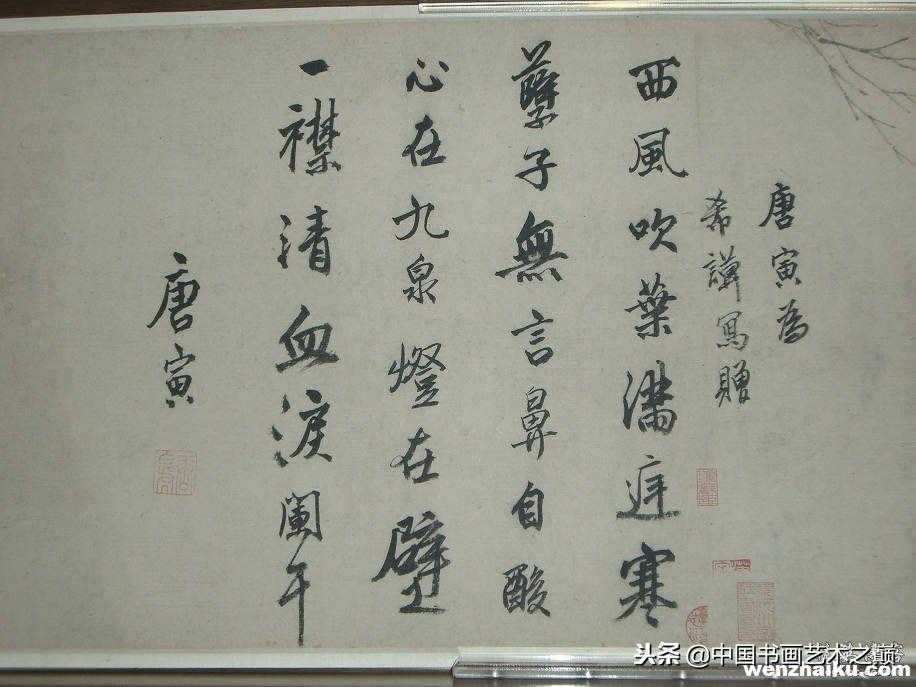 唐寅為
希謨寫贈
西風吹葉滿庭寒
孽子無言鼻自酸
心在九泉燈在壁
一襟清血淚闌干
唐寅
头条 @中国书画艺术之巅
wenzhaiku.com